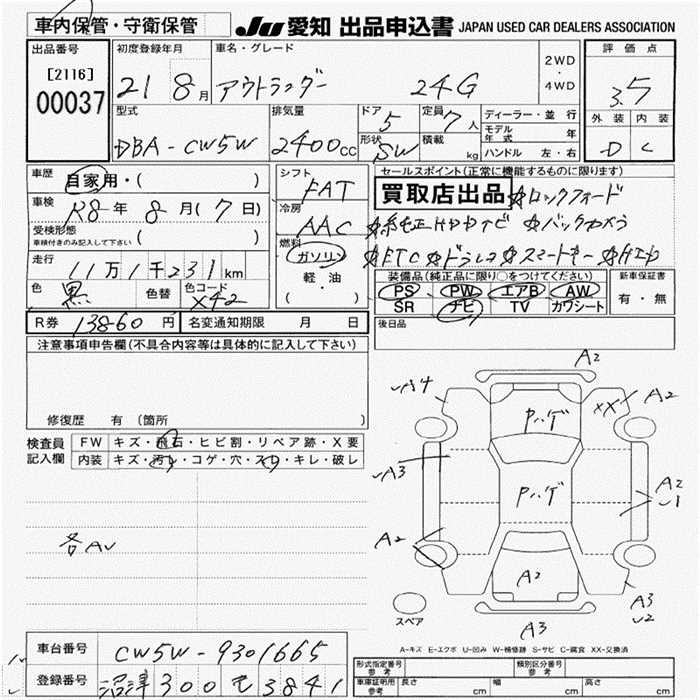 車内保管・守衛保管 JU 愛知 出品申込書 JAPAN USED CAR DEALERS ASSOCIATION
出品番号 初度登録年月 車名・グレード 評価点
[2116] 21 8月 アウトランダー 24G 2WD・4WD 3.5
00037
型式 排気量 ドア 5 定員 7人 ディーラー・並行 外装 内装
モデル年式 年
DBA-CW5W 2400cc 形状 SW 積載 kg ハンドル 左・右 D C
車歴 自家用・( ) シフト FAT セールスポイント(正常に機能するものに限ります)
車検 R8年 8月(7日) 冷房 AAC 買取店出品 ☆ロックフォード
受検形態 ( )
車検付きのみ記入して下さい
☆純正HDDナビ ☆バックカメラ
燃料 ガソリン 軽・油 ( )
☆ETC ☆ドラレコ ☆スマートキー
走行 11万1千231km
色 黒 色替 色コード X42
装備品(純正品に限り○をつけてください) 新車保証書
PS PW エアB AW 有・無
SR ナビ TV カワシート
R券 13860円 名変通知期限 月 日 後日品
注意事項申告欄(不具合内容等は具体的に記入して下さい)
修復歴 有(箇所 )
検査員記入欄 FW キズ・飛石・ヒビ割・リペア跡・X要
内装 キズ・汚レ・コゲ・穴・スレ・キレ・破レ
各AU
A2
A4 XX A2
Pハゲ
A3
Pハゲ
A2
U1
A2
A2
A3
U2
A3
スペア
A-キズ E-エクボ U-凹み W-補修跡 S-サビ C-腐食 XX-交換済
車台番号 CW5W-9301665
登録番号 沼津 300 モ 3841
形式指定番号 参考 類別区分番号 参考
車庫証明用 参考 長さ cm 幅 cm 高さ cm